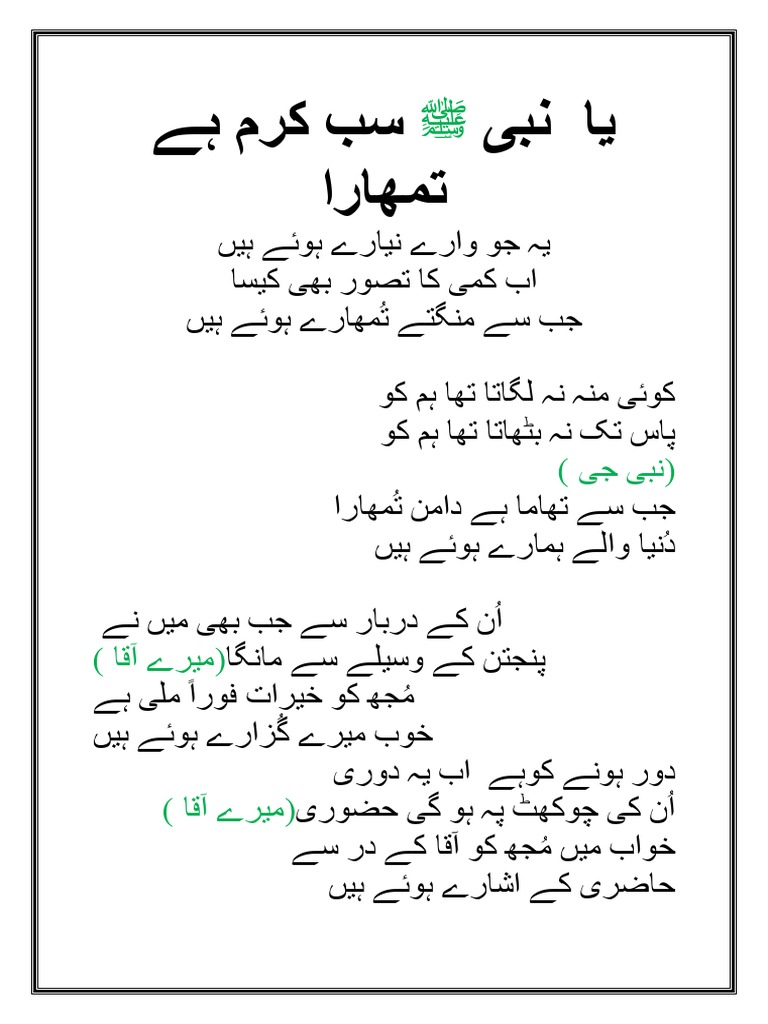 یا نبی ﷺ سب کرم ہے
تمھارا
یہ جو وارے نیارے ہوئے ہیں
اب کمی کا تصور بھی کیسا
جب سے منگتے تُمھارے ہوئے ہیں
کوئی منہ نہ لگاتا تھا ہم کو
پاس تک نہ بٹھاتا تھا ہم کو
(نبی جی )
جب سے تھاما ہے دامن تُمھارا
دُنیا والے ہمارے ہوئے ہیں
اُن کے دربار سے جب بھی میں نے
پنجتن کے وسیلے سے مانگا(میرے آقا )
مُجھ کو خیرات فوراً ملی ہے
خوب میرے گُزارے ہوئے ہیں
دور ہونے کوہے اب یہ دوری
اُن کی چوکھٹ پہ ہو گی حضوری(میرے آقا )
خواب میں مُجھ کو آقا کے در سے
حاضری کے اشارے ہوئے ہیں